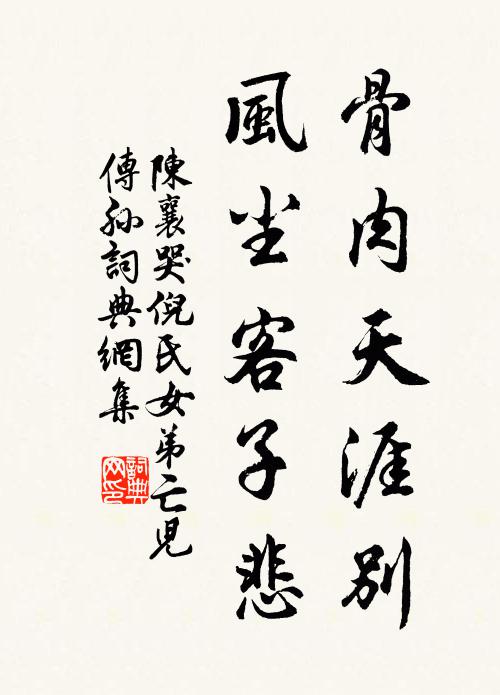 骨肉天涯別
風尘客子悲
陳襄哭倪氏女弟亡児
傳孙詞典網集
詞典
网印